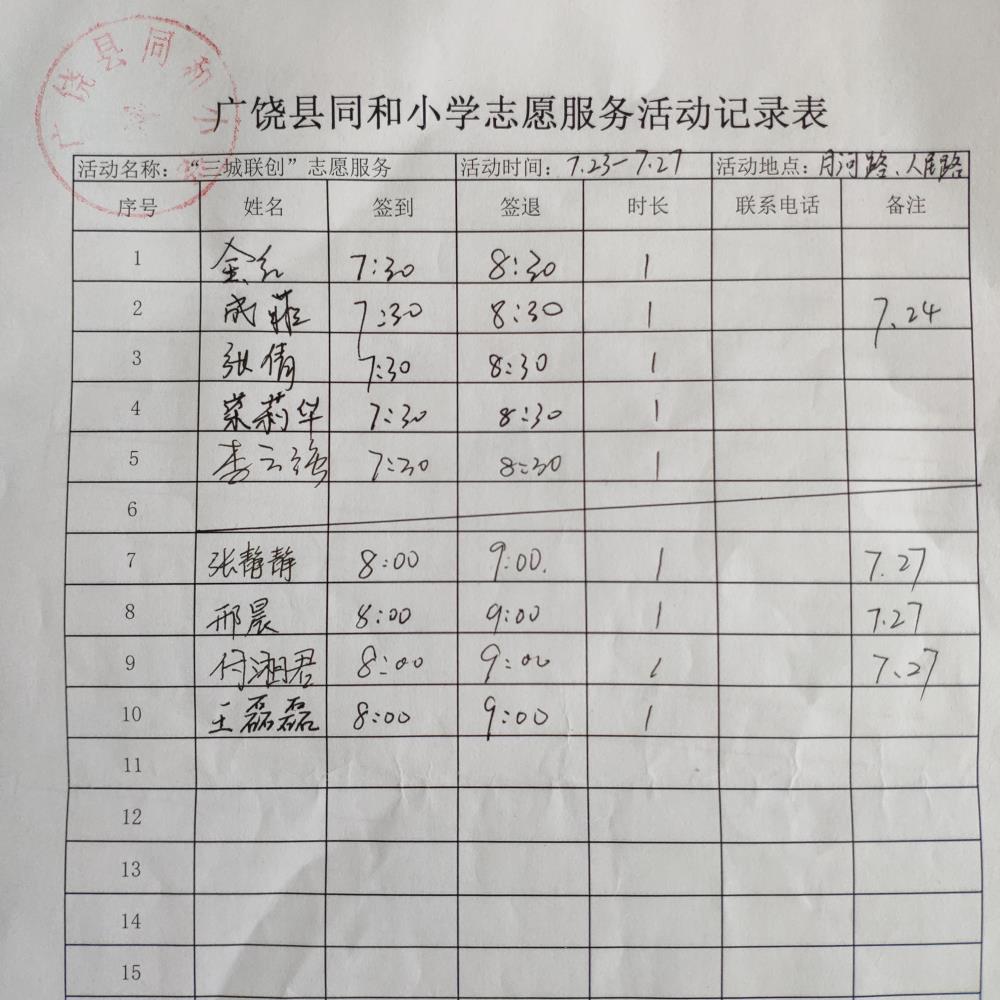 广饶县同和小
广饶县同和小学志愿服务活动记录表
活动名称：“三城联创”志愿服务 活动时间：7.23-7.27 活动地点：月河路、人民路
序号 姓名 签到 签退 时长 联系电话 备注
1 金红 7:30 8:30 1
2 成菲 7:30 8:30 1 7.24
3 张倩 7:30 8:30 1
4 荣莉华 7:30 8:30 1
5 李云强 7:30 8:30 1
6
7 张静静 8:00 9:00. 1 7.27
8 邢晨 8:00 9:00 1 7.27
9 付湘君 8:00 9:00 1 7.27
10 王磊磊 8:00 9:00 1
11
12
13
14
15